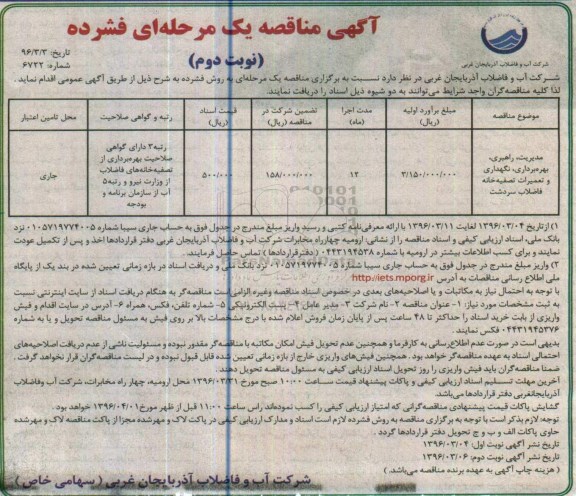 آگهی مناقصه یک مرحله‌ای فشرده
(نوبت دوم)
تاریخ: ۹۶/۳/۳
شماره: ۶۷۲۲
شرکت آب و فاضلاب آذربایجان غربی
شرکت آب و فاضلاب آذربایجان غربی در نظر دارد نسبت به برگزاری مناقصه یک مرحله‌ای به روش فشرده به شرح ذیل از طریق آگهی عمومی اقدام نماید.
لذا کلیه مناقصه‌گران واجد شرایط می‌توانند به دو شیوه ذیل اسناد را دریافت نمایند.
موضوع مناقصه | مبلغ برآورد اولیه (ریال) | مدت اجرا (ماه) | تضمین شرکت در مناقصه (ریال) | قیمت اسناد (ریال) | رتبه و گواهی صلاحیت | محل تامین اعتبار
مدیریت، راهبری، بهره‌برداری، نگهداری و تعمیرات تصفیه‌خانه فاضلاب سردشت | ۳/۱۵۰/۰۰۰/۰۰۰ | ۱۲ | ۱۵۸/۰۰۰/۰۰۰ | ۵۰۰/۰۰۰ | رتبه۳ دارای گواهی صلاحیت بهره‌برداری از تصفیه‌خانه‌های فاضلاب از وزارت نیرو و رتبه۵ آب از سازمان برنامه و بودجه | جاری
۱) از تاریخ ۱۳۹۶/۰۳/۰۴ لغایت ۱۳۹۶/۰۳/۱۱ با ارائه معرفی‌نامه کتبی و رسید واریز مبلغ مندرج در جدول فوق به حساب جاری سیبا شماره ۰۱۰۵۷۱۹۷۷۴۰۰۵ نزد
بانک ملی، اسناد ارزیابی کیفی و اسناد مناقصه را از نشانی: ارومیه چهارراه مخابرات شرکت آب و فاضلاب آذربایجان غربی دفتر قراردادها اخذ و پس از تکمیل عودت
نمایند و برای کسب اطلاعات بیشتر در ارومیه با شماره ۰۴۴۳۱۹۴۵۳۸ (دفترقراردادها) تماس حاصل فرمایند.
۲) واریز مبلغ مندرج در جدول فوق به حساب جاری سیبا شماره ۰۱۰۵۷۱۹۷۷۴۰۰۵ نزد بانک ملی و دریافت اسناد در بازه زمانی تعیین شده در بند یک از پایگاه
ملی اطلاع رسانی مناقصات به آدرس http://iets.mporg.ir
با توجه به احتمال نیاز به مکاتبات و یا اصلاحیه‌های بعدی در خصوص اسناد مناقصه وغیره الزامی است مناقصه‌گر به هنگام دریافت اسناد از سایت اینترنتی نسبت
به ثبت مشخصات مورد نیاز: ۱- عنوان مناقصه ۲- نام شرکت ۳- مدیر عامل ۴- پست الکترونیکی ۵- شماره تلفن، فکس، همراه ۶- آدرس در سایت اقدام و فیش
واریزی از بابت خرید اسناد را حداکثر تا ۴۸ ساعت پس از پایان زمان فروش اعلام شده با درج مشخصات بالا بر روی فیش به مسئول مناقصه تحویل و یا به شماره
۰۴۴۳۱۹۴۵۳۷۶ فکس نمایند.
بدیهی است در صورت عدم اطلاع‌رسانی به کارفرما و همچنین عدم تحویل فیش امکان مکاتبه با مناقصه‌گر مقدور نبوده و مسئولیت ناشی از عدم دریافت اصلاحیه‌های
احتمالی اسناد به عهده مناقصه‌گر خواهد بود. همچنین فیش‌های واریزی خارج از بازه زمانی تعیین شده قابل قبول نبوده و در لیست مناقصه‌گران قرار نخواهد گرفت.
ضمنا مناقصه‌گران باید فیش واریزی را روز تحویل اسناد ارزیابی کیفی به مسئول مناقصه تحویل دهند.
آخرین مهلت تسلیم اسناد ارزیابی کیفی و پاکات پیشنهاد قیمت ساعت ۱۰:۰۰ صبح مورخ ۱۳۹۶/۰۳/۳۱ محل ارومیه، چهار راه مخابرات، شرکت آب وفاضلاب
آذربایجانغربی دفتر قراردادها می‌باشد.
گشایش پاکات قیمت پیشنهادی مناقصه‌گرانی که امتیاز ارزیابی کیفی را کسب نموده‌اند راس ساعت ۱۱:۰۰ قبل از ظهر مورخ۱۳۹۶/۰۴/۰۱ خواهد بود.
توجه: لازم بذکر است با توجه به برگزاری مناقصه به روش فشرده لازم است اسناد و مدارک ارزیابی کیفی در پاکت لاک و مهرشده مجزا از پاکت مناقصه لاک و مهرشده
حاوی پاکات الف و ب و ج تحویل دفتر قراردادها گردد.
تاریخ نشر آگهی نوبت اول: ۱۳۹۶/۰۳/۰۴
تاریخ نشر آگهی نوبت دوم: ۱۳۹۶/۰۳/۰۶
( هزینه چاپ آگهی به عهده برنده مناقصه می‌باشد.)
شرکت آب و فاضلاب آذربایجان غربی (سهامی خاص)